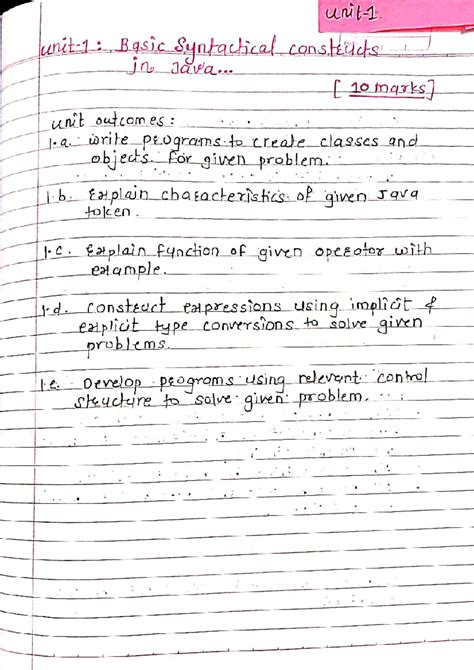 unit-1
unit-1 : Basic Syntactical constructs
in Java...
[ 10 marks]
unit outcomes :
1.a. write programs to create classes and
objects for given problem.
1.b. Explain characteristics of given Java
token.
1.c. Explain function of given operator with
example.
1.d. construct expressions using implicit &
explicit type conversions to solve given
problems.
1.e. Develop programs using relevant control
structure to solve given problem.